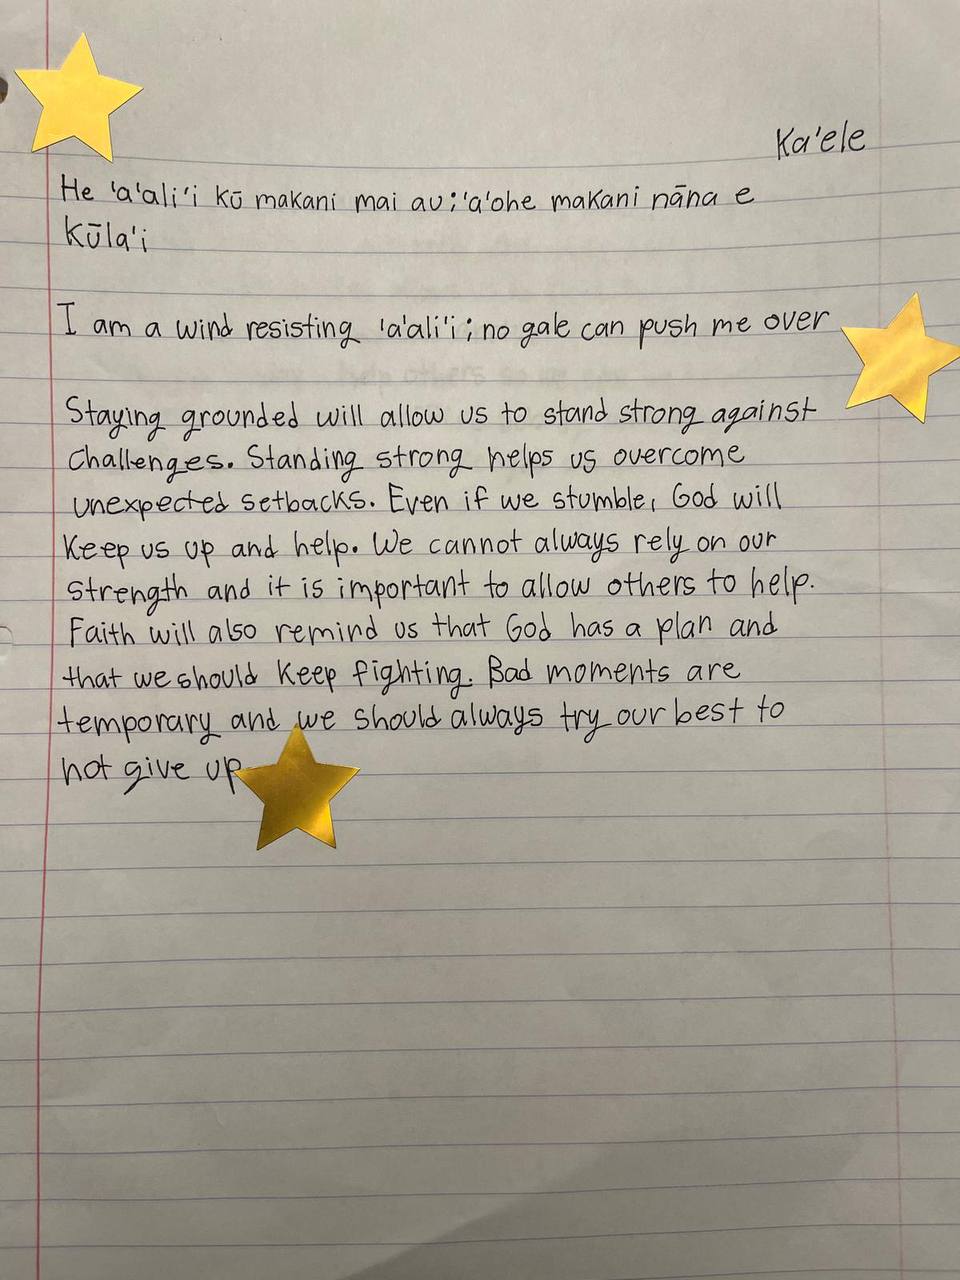 Ka'ele
He 'a'ali'i kū makani mai au; 'a'ohe makani nāna e
kūla'i
I am a wind resisting 'a'ali'i; no gale can push me over
Staying grounded will allow us to stand strong against
challenges. Standing strong helps us overcome
unexpected setbacks. Even if we stumble, God will
keep us up and help. We cannot always rely on our
strength and it is important to allow others to help.
Faith will also remind us that God has a plan and
that we should keep fighting. Bad moments are
temporary and we should always try our best to
not give up